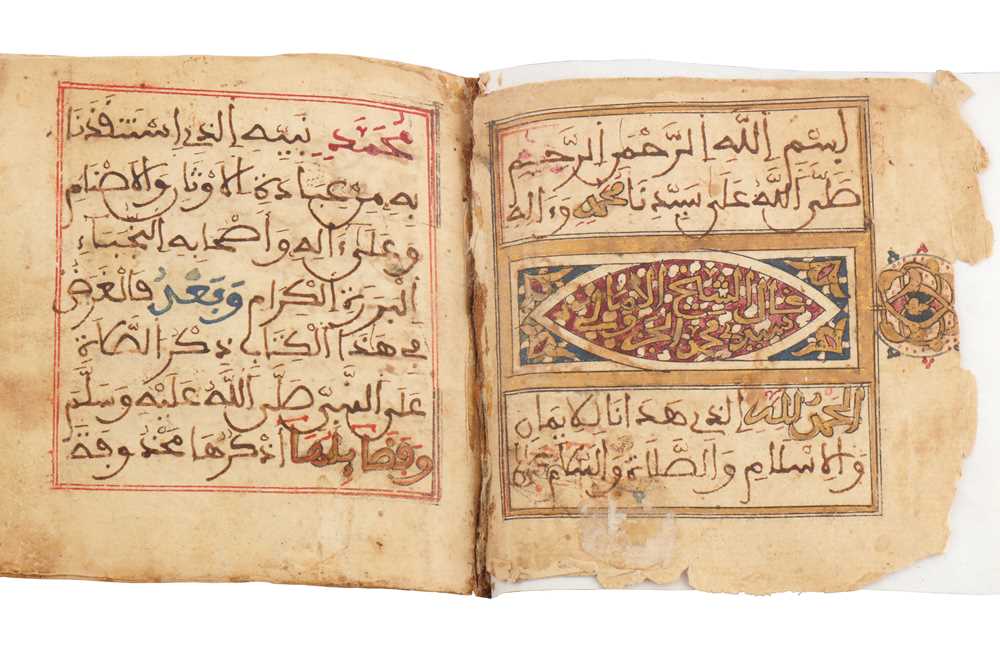 بِسْمِ اللَّهِ الرَّحْمٰنِ الرَّحِيمِ
صَلَّى اللَّهُ عَلَى سَيِّدِنَا مُحَمَّدٍ وَءَالِهِ
قال الشيخ
محمد الجزولي
الحمد لله الذي هَدَانَا لِلايمَانِ
وَالاسْلَامِ وَالصَّلَاةُ وَالسَّلَامُ عَلَى
مُحَمَّدٍ نَبِيِّهِ الذِي اسْتَنْقَذَنَا
بِهِ مِنْ عِبَادَةِ الاوْثَانِ وَالاصْنَامِ
وَعَلَى ءَالِهِ وَأَصْحَابِهِ النُّجَبَاءِ
الْبَرَرَةِ الْكِرَامِ وَبَعْدُ فَالْغَرَضُ
فِي هَذَا الْكِتَابِ ذِكْرُ الصَّلَاةِ
عَلَى النَّبِيِّ صَلَّى اللَّهُ عَلَيْهِ وَسَلَّمَ
وَفَضَائِلِهَا أَذْكُرُهَا مَحْذُوفَةَ